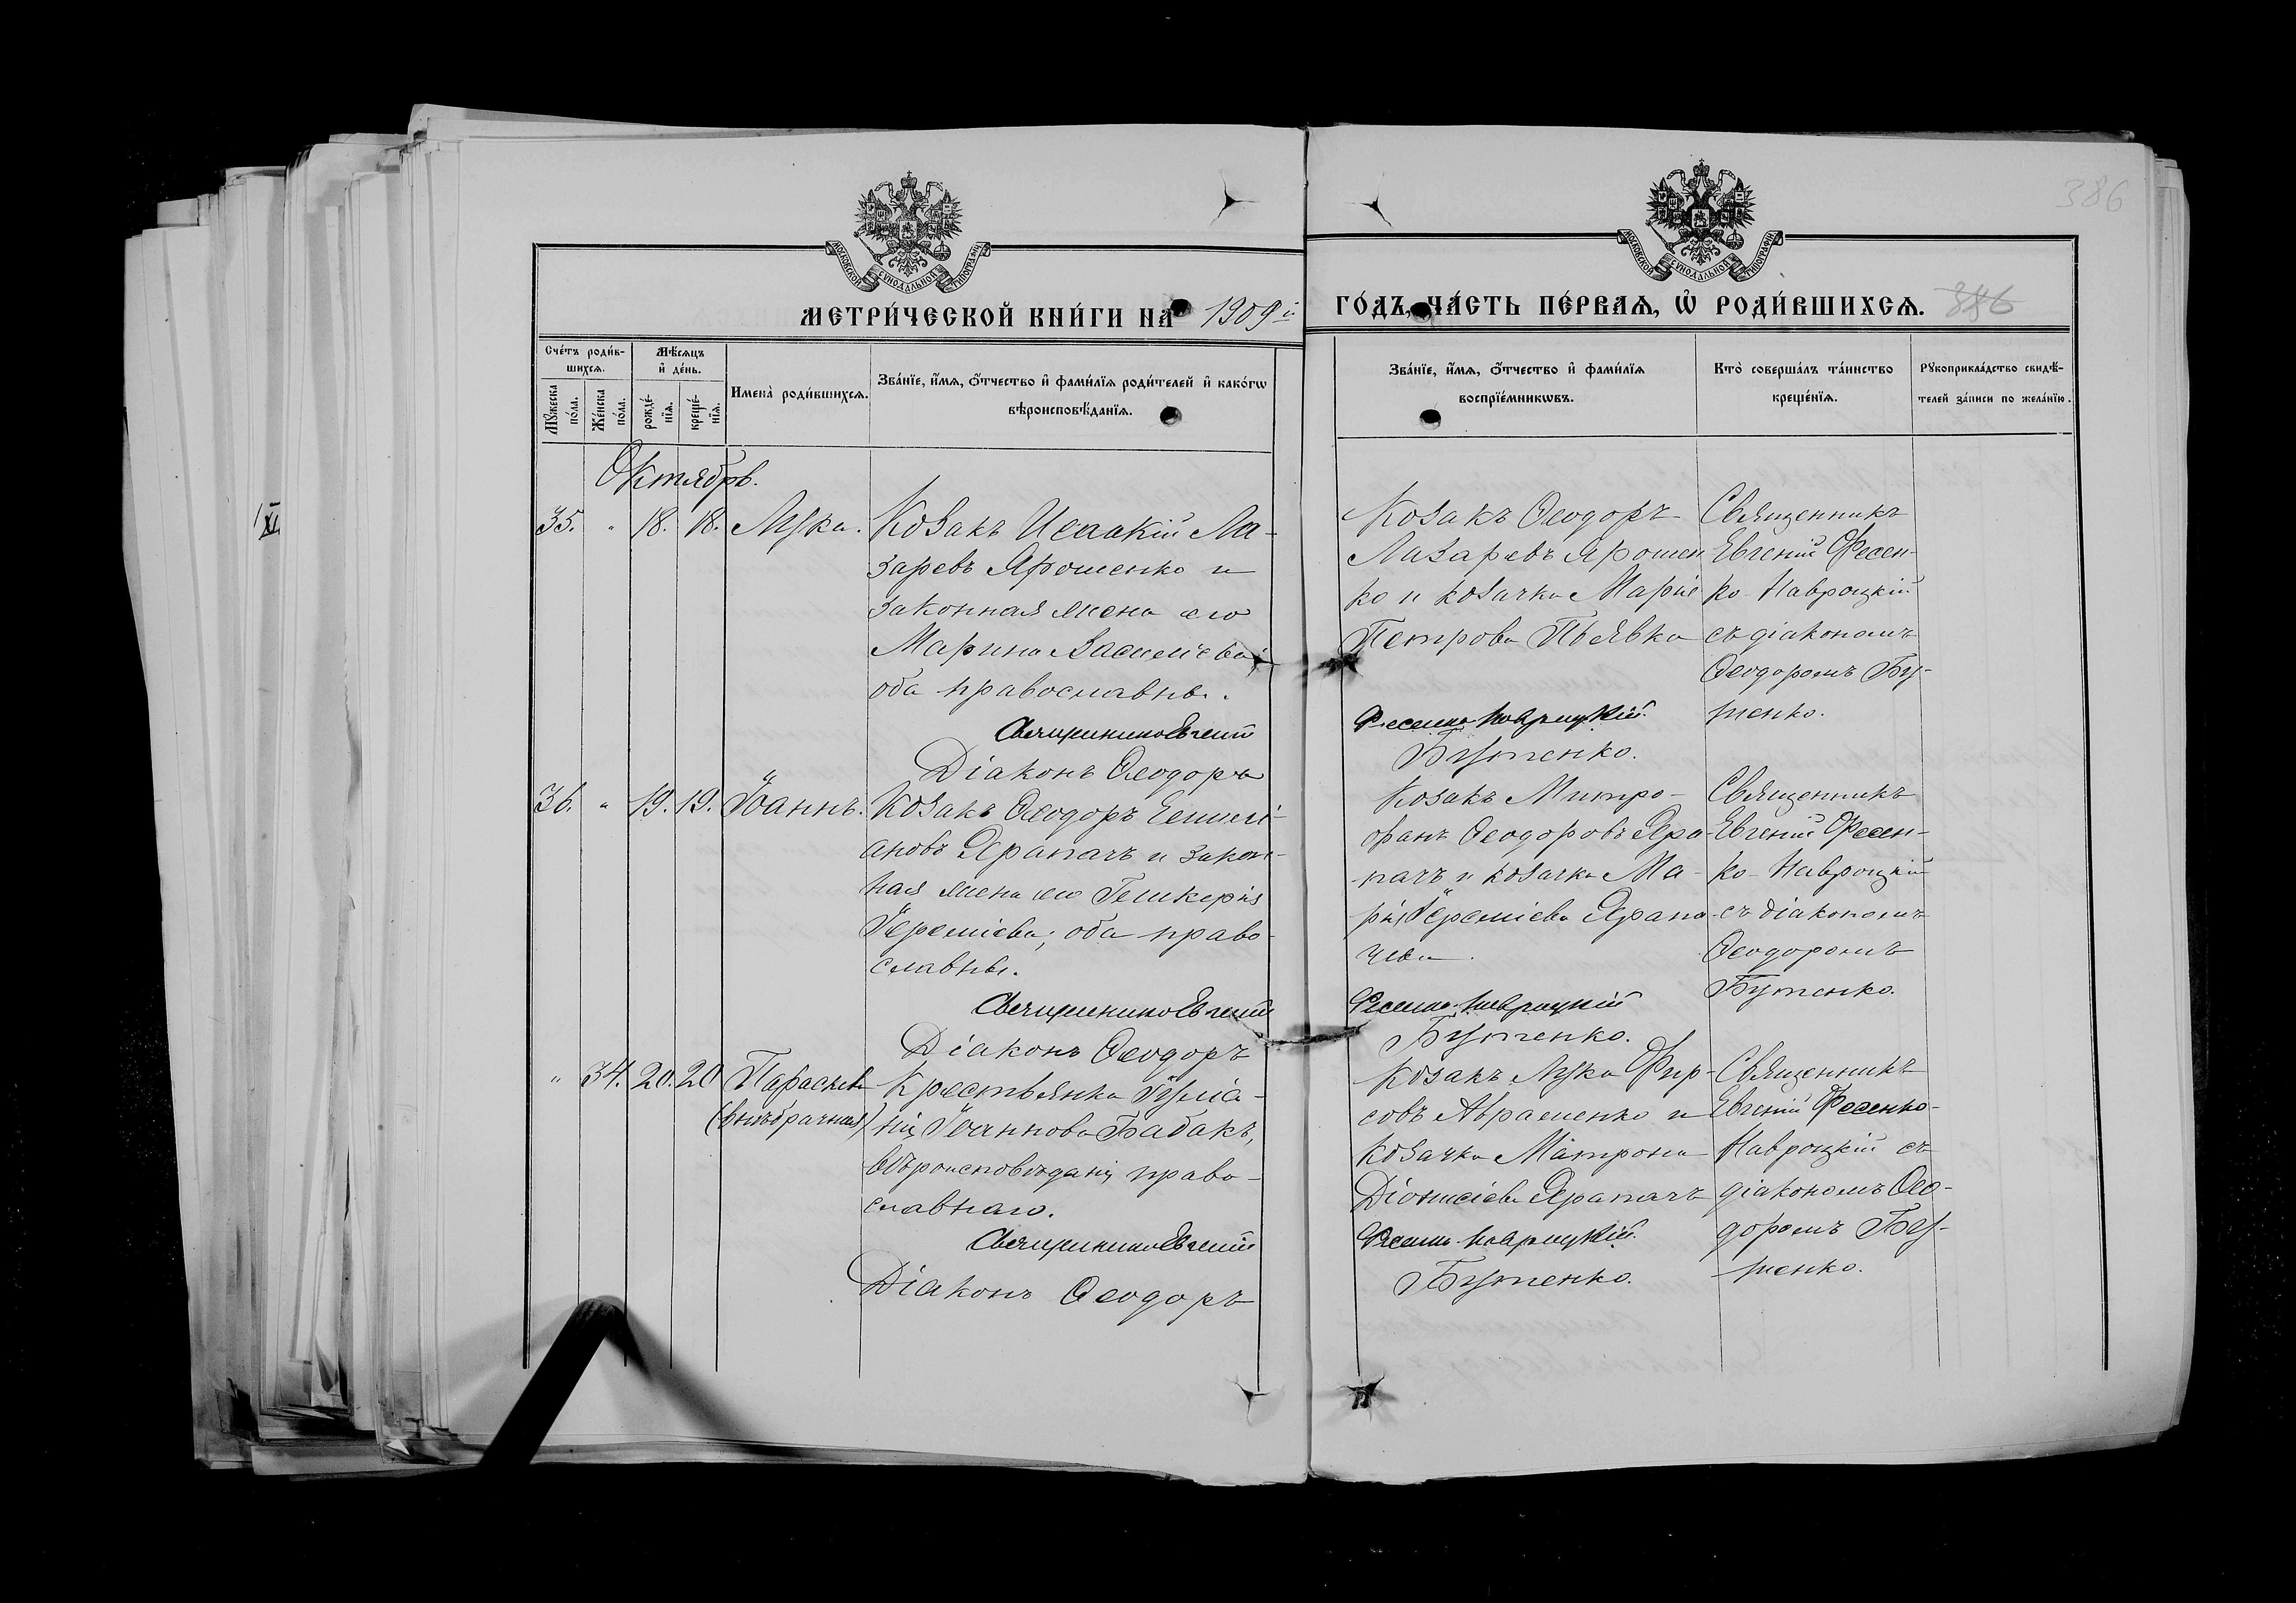 386
МОСКОВСКОЙ СУНОДАЛЬНОЙ ТИПОГРАФІИ
МОСКОВСКОЙ СУНОДАЛЬНОЙ ТИПОГРАФІИ
МЕТРИ́ЧЕСКОЙ КНИ́ГИ НА 1909й
ГО́ДЪ, ЧА́СТЬ ПЕ́РВАѦ, Ѡ҆ РОДИ́ВШИХСѦ. 386
Сче́тъ роди́в-
шихсѧ.
Мꙋ́жеска
по́ла.
Же́нска
по́ла.
Мѣ́сѧцъ
и҆ де́нь.
рожде́-
нїѧ.
креще́-
нїѧ.
Имена̀ роди́вшихсѧ.
Зва́нїе, и҆́мѧ, ѻ҆́тчество и҆ фами́лїѧ роди́телей и҆ како́гѡ
вѣроисповѣ́данїѧ.
Зва́нїе, и҆́мѧ, ѻ҆́тчество и҆ фами́лїѧ
воспрїе́мникѡвъ.
Кто̀ соверша́лъ та́инство
креще́нїѧ.
Рꙋкоприкла́дство свидѣ́-
телей за́писи по жела́нїю.
Октябрь.
35. " 18. 18. Лука.
Козакъ Исаакій Ла-
заревъ Ярошенко и
законная жена его
Марина Василіева
оба православны.
Священникъ Евгеній
Діаконъ Ѳеодоръ
Козакъ Ѳеодоръ
Лазаревъ Ярошен
ко и козачка Марія
Петрова Пьявка
Фесенко-Навроцкій.
Бутенко.
Священникъ
Евгеній Фесен-
ко-Навроцкій
съ діакономъ
Ѳеодоромъ Бу-
тенко.
36. " 19. 19. Іоаннъ.
Козакъ Ѳеодоръ Емилі-
ановъ Ярапачъ и закон-
ная жена его Гликерія
Іереміева; оба право-
славны.
Священникъ Евгеній
Діаконъ Ѳеодоръ
Козакъ Митро-
фанъ Ѳеодоровъ Яра-
пачъ и козачка Ма-
рія Іереміева Ярапа-
чева.
Фесенко-Навроцкій
Бутенко.
Священникъ
Евгеній Фесен-
ко-Навроцкій
съ діакономъ
Ѳеодоромъ
Бутенко.
" 34. 20. 20 Параскева
(внѣбрачная)
Крестьянка Іуліа-
нія Іоаннова Бабакъ,
вѣроисповѣданія право-
славнаго.
Священникъ Евгеній
Діаконъ Ѳеодоръ
Козакъ Лука Фир-
совъ Авраменко и
козачка Матрона
Діонисіева Ярапачъ
Фесенко-Навроцкій.
Бутенко.
Священникъ
Евгеній Фесенко-
Навроцкій съ
діакономъ Ѳео-
доромъ Бу-
тенко.